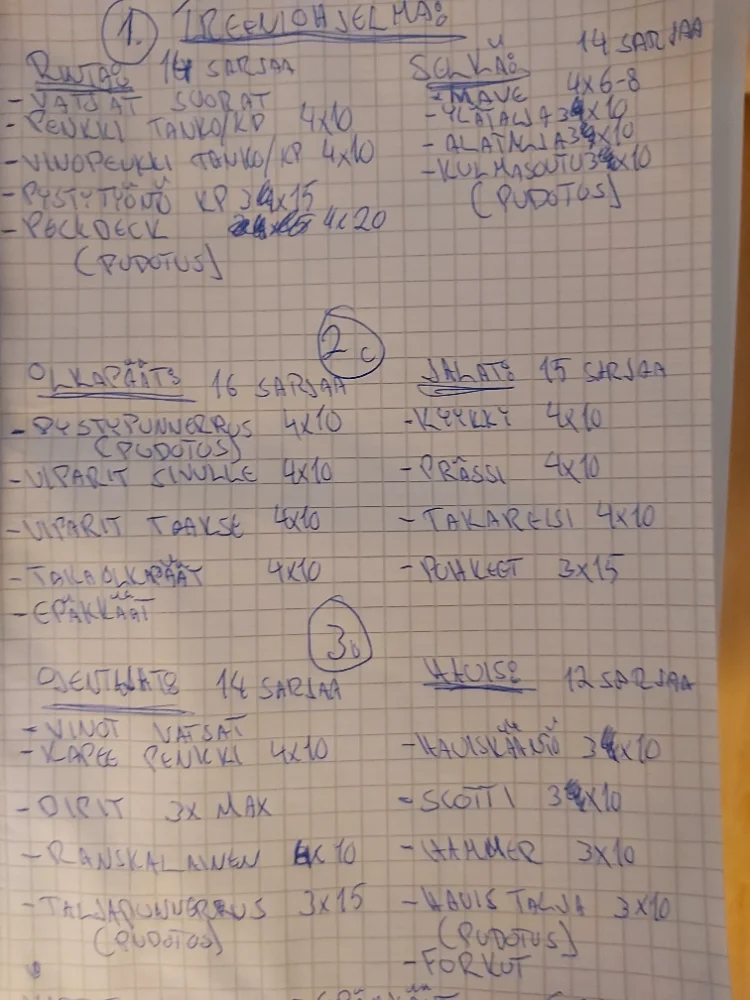 1. TREENIOHJELMA:
RINTA: 14 SARJAA
- VATSAT SUORAT
- PENKKI TANKO/KP 4x10
- VINOPENKKI TANKO/KP 4x10
- PYSTYTYÖNTÖ KP 3x15
- PECKDECK 4x20
(PUDOTUS)
SELKÄ: 14 SARJAA
- MAVE 4x6-8
- YLÄTALJA 3x10
- ALATALJA 3x10
- KULMASOUTU 3x10
(PUDOTUS)
2.
OLKAPÄÄT: 16 SARJAA
- PYSTYPUNNERRUS 4x10
(PUDOTUS)
- VIPARIT SIVULLE 4x10
- VIPARIT TAAKSE 4x10
- TAKAOLKAPÄÄT 4x10
- EPÄKKÄÄT
JALAT: 15 SARJAA
- KYYKKY 4x10
- PRÄSSI 4x10
- TAKAREISI 4x10
- POHKEET 3x15
3.
OJENTAJAT: 14 SARJAA
- VINOT VATSAT
- KAPEE PENKKI 4x10
- DIPIT 3x MAX
- RANSKALAINEN 4x10
- TALJAPUNNERRUS 3x15
(PUDOTUS)
HAUIS: 12 SARJAA
- HAUISKÄÄNTÖ 3x10
- SCOTTI 3x10
- HAMMER 3x10
- HAUIS TALJA 3x10
(PUDOTUS)
- FORKUT